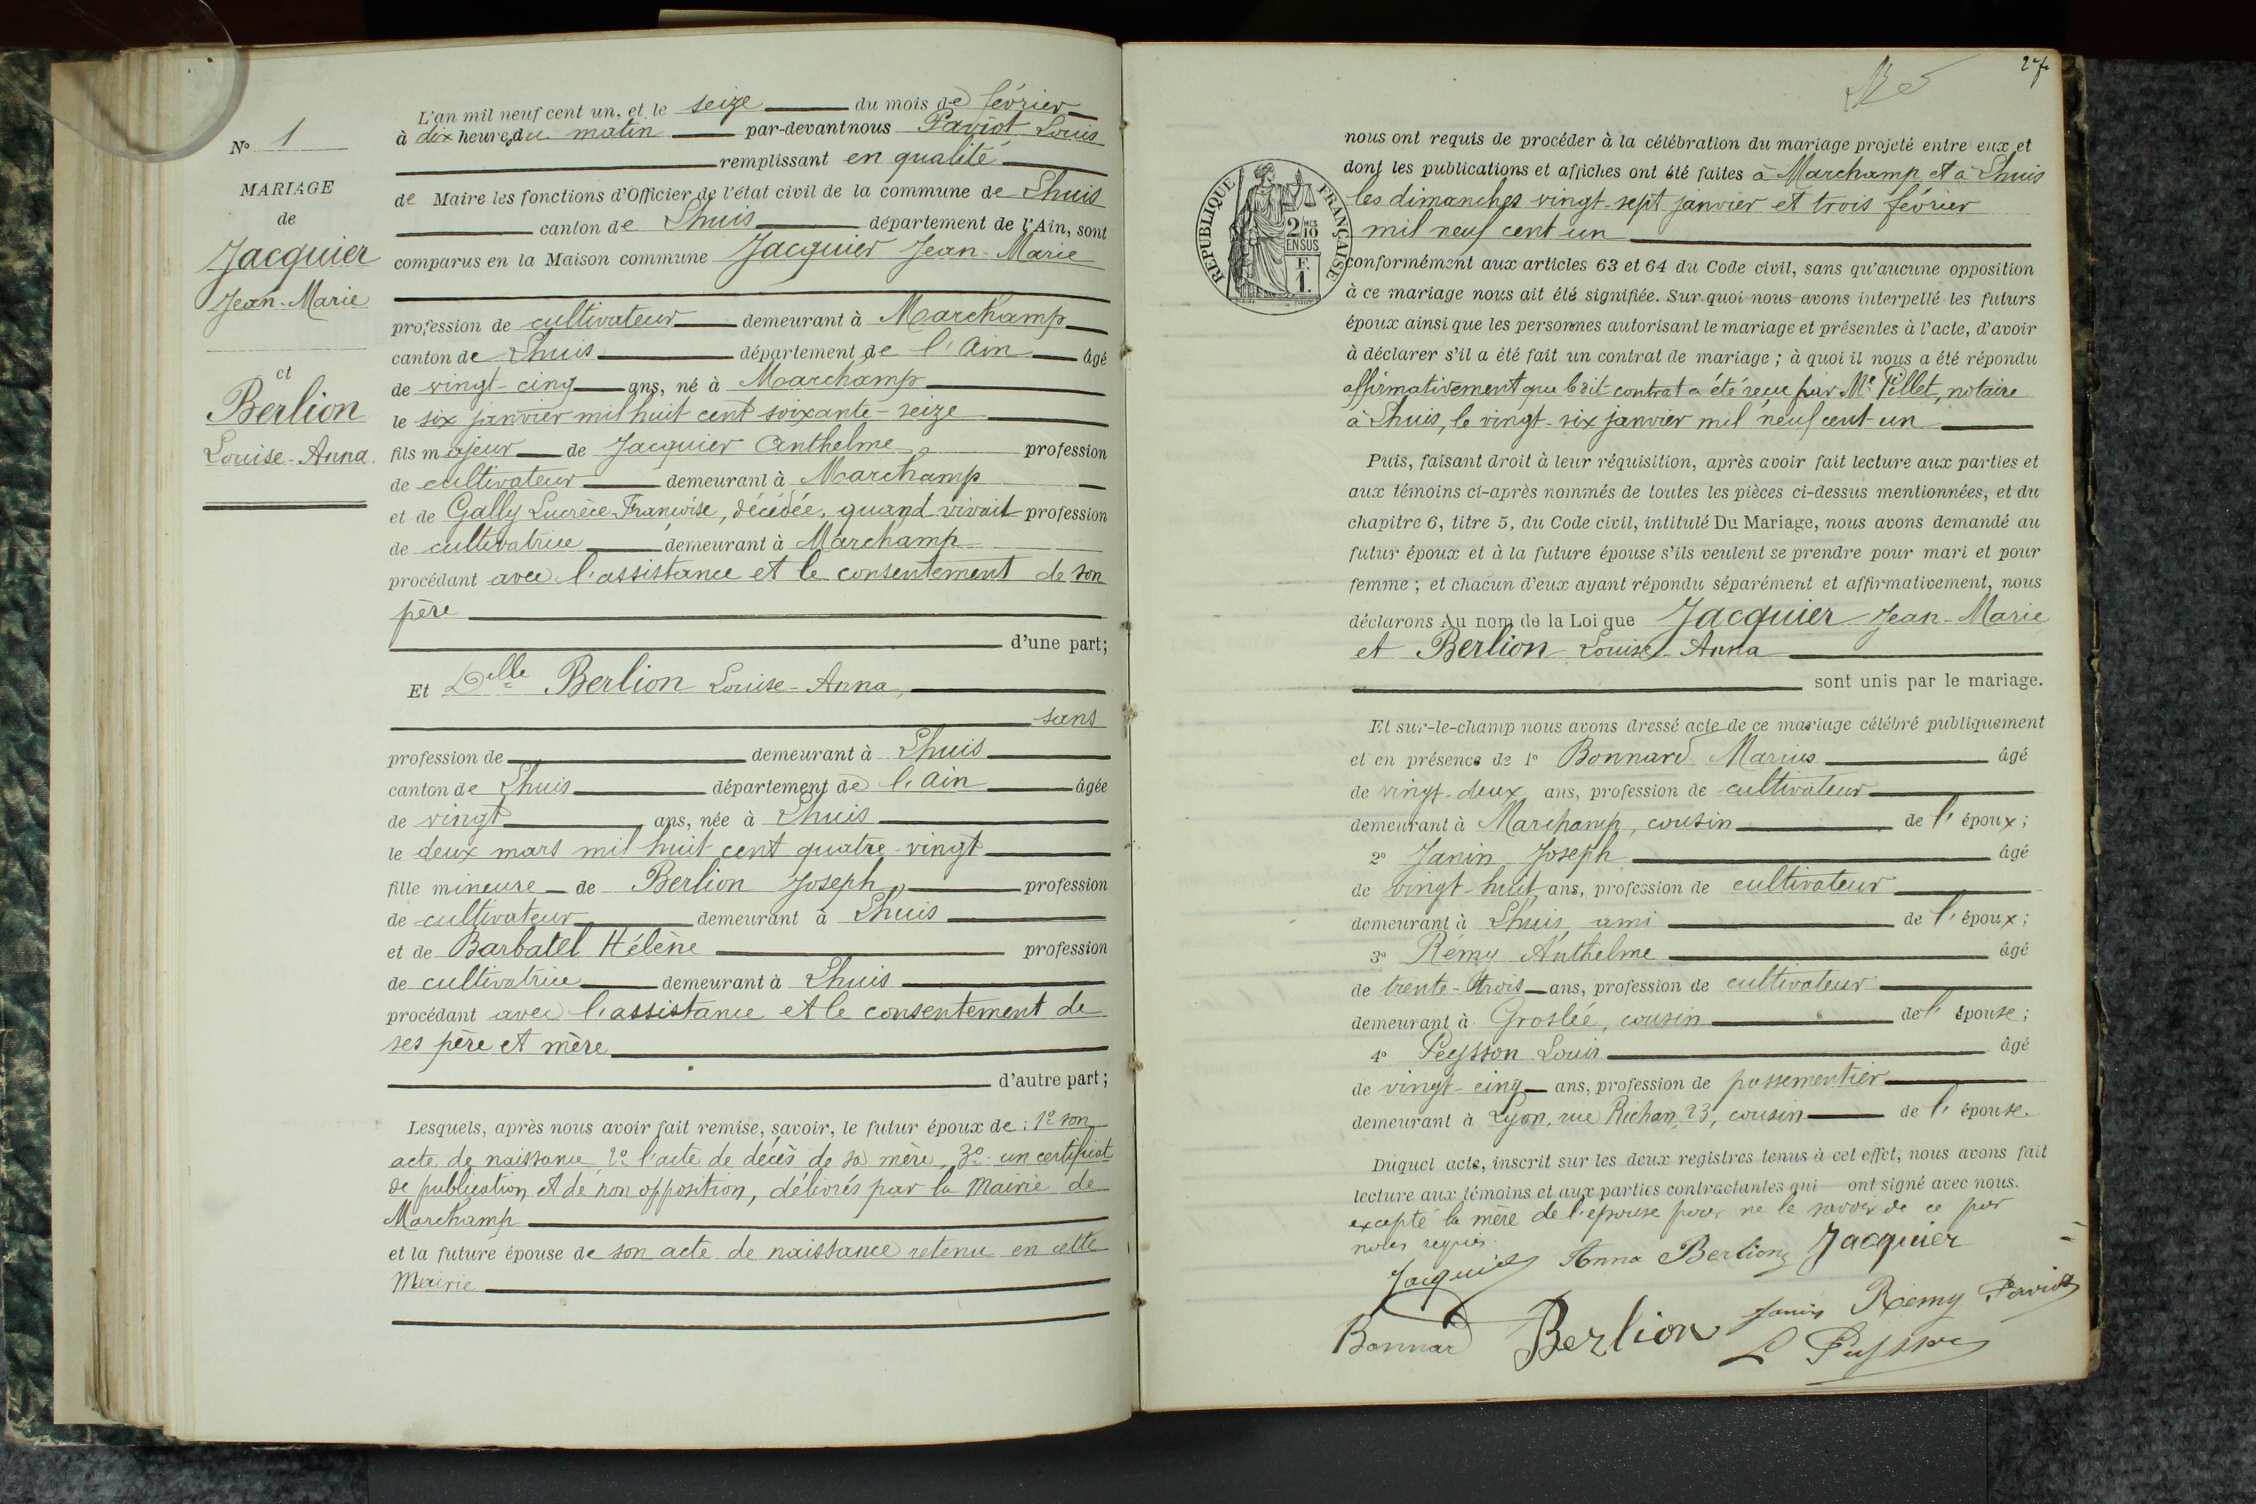 N° 1
MARIAGE
de
Jacquier
Jean-Marie
et
Berlion
Louise-Anna.
L'an mil neuf cent un, et le seize du mois de février
à dix heures du matin par-devant nous Paviot Louis
remplissant en qualité
de Maire les fonctions d'Officier de l'état civil de la commune de Lhuis
canton de Lhuis département de l'Ain, sont
comparus en la Maison commune Jacquier Jean-Marie
profession de cultivateur demeurant à Marchamp
canton de Lhuis département de l'Ain âgé
de vingt-cinq ans, né à Marchamp
le six janvier mil huit cent soixante-seize
fils majeur de Jacquier Anthelme, profession
de cultivateur demeurant à Marchamp
et de Gally Lucrèce-Françoise, décédée, quand vivait profession
de cultivatrice demeurant à Marchamp
procédant avec l'assistance et le consentement de son
père
d'une part;
Et Delle Berlion Louise-Anna,
sans
profession de demeurant à Lhuis
canton de Lhuis département de l'Ain âgée
de vingt ans, née à Lhuis
le deux mars mil huit cent quatre-vingt
fille mineure de Berlion Joseph, profession
de cultivateur demeurant à Lhuis
et de Barbatel Hélène profession
de cultivatrice demeurant à Lhuis
procédant avec l'assistance et le consentement de
ses père et mère
d'autre part;
Lesquels, après nous avoir fait remise, savoir, le futur époux de: 1° son
acte de naissance 2° l'acte de décès de sa mère, 3° un certificat
de publication et de non opposition, délivrés par la Mairie de
Marchamp
et la future épouse de son acte de naissance retenu en cette
Mairie
27
nous ont requis de procéder à la célébration du mariage projeté entre eux et
dont les publications et affiches ont été faites à Marchamp et à Lhuis
les dimanches vingt-sept janvier et trois février
mil neuf cent un
RÉPUBLIQUE FRANÇAISE
2/10 MES
EN SUS
F.
1.
conformément aux articles 63 et 64 du Code civil, sans qu'aucune opposition
à ce mariage nous ait été signifiée. Sur quoi nous avons interpellé les futurs
époux ainsi que les personnes autorisant le mariage et présentes à l'acte, d'avoir
à déclarer s'il a été fait un contrat de mariage; à quoi il nous a été répondu
affirmativement que ledit contrat a été reçu par Me Pellet, notaire
à Lhuis, le vingt-six janvier mil neuf cent un
Puis, faisant droit à leur réquisition, après avoir fait lecture aux parties et
aux témoins ci-après nommés de toutes les pièces ci-dessus mentionnées, et du
chapitre 6, titre 5, du Code civil, intitulé Du Mariage, nous avons demandé au
futur époux et à la future épouse s'ils veulent se prendre pour mari et pour
femme; et chacun d'eux ayant répondu séparément et affirmativement, nous
déclarons Au nom de la Loi que Jacquier Jean-Marie
et Berlion Louise-Anna
sont unis par le mariage.
Et sur-le-champ nous avons dressé acte de ce mariage célébré publiquement
et en présence de 1° Bonnard Marius âgé
de vingt-deux ans, profession de cultivateur
demeurant à Marchamp, cousin de l'époux;
2° Janin Joseph âgé
de vingt-huit ans, profession de cultivateur
demeurant à Lhuis, ami de l'époux;
3° Rémy Anthelme âgé
de trente-trois ans, profession de cultivateur
demeurant à Groslée, cousin de l'épouse;
4° Peysson Louis âgé
de vingt-cinq ans, profession de passementier
demeurant à Lyon, rue Richan, 23, cousin de l'épouse.
Duquel acte, inscrit sur les deux registres tenus à cet effet, nous avons fait
lecture aux témoins et aux parties contractantes qui ont signé avec nous.
excepté la mère de l'épouse pour ne le savoir de ce par
nous requis.
Jacquier Anna Berlion Jacquier
Bonnard Berlion Janin Remy Paviot
L Peysson